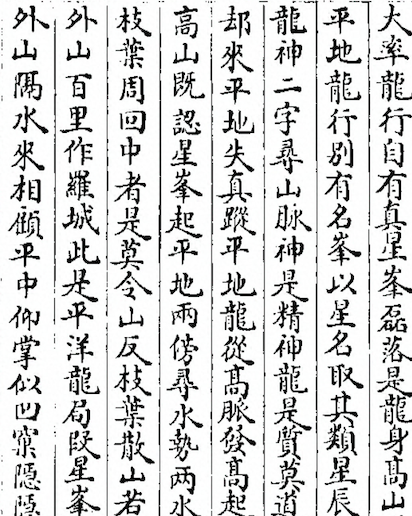 大率龍行自有真星峯磊落是龍身髙山
平地龍行别有名峯以星名取其類星辰
龍神二字尋山脉神是精神龍是質莫道
却來平地失真蹤平地龍從髙脈發髙起
髙山既認星峯起平地兩傍尋水勢两水
枝葉周回中者是莫令山反枝葉散山若
外山百里作羅城此是平洋龍局段星峯
外山隔水來相顧平中仰掌似凹窠隱隱